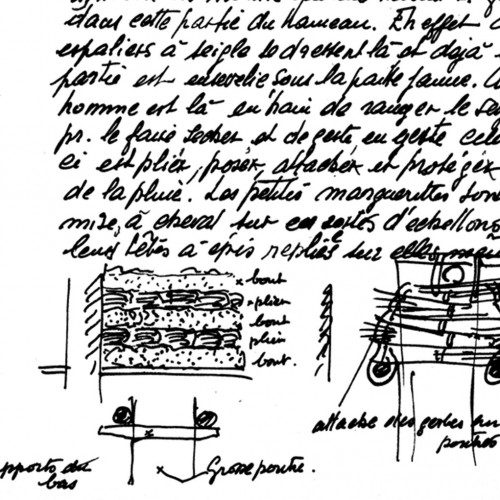 dans cette partie du hameau. En effet
espaliers à seigle se dressent là et déjà
partie est ensevelie sous la paille jaune.
homme est là en train de ranger le
pr. le faire sécher et de geste en geste
ci est plié, poser, attacher et protéger
de la pluie. Les petites marguerites sont
mises à cheval sur ces sortes d'échellons
leurs têtes à épis repliés sur elles
x bout
x plier
bout
plein
bout.
attache des gerbes
poutres
apports du
bas
x Grosse poutre.